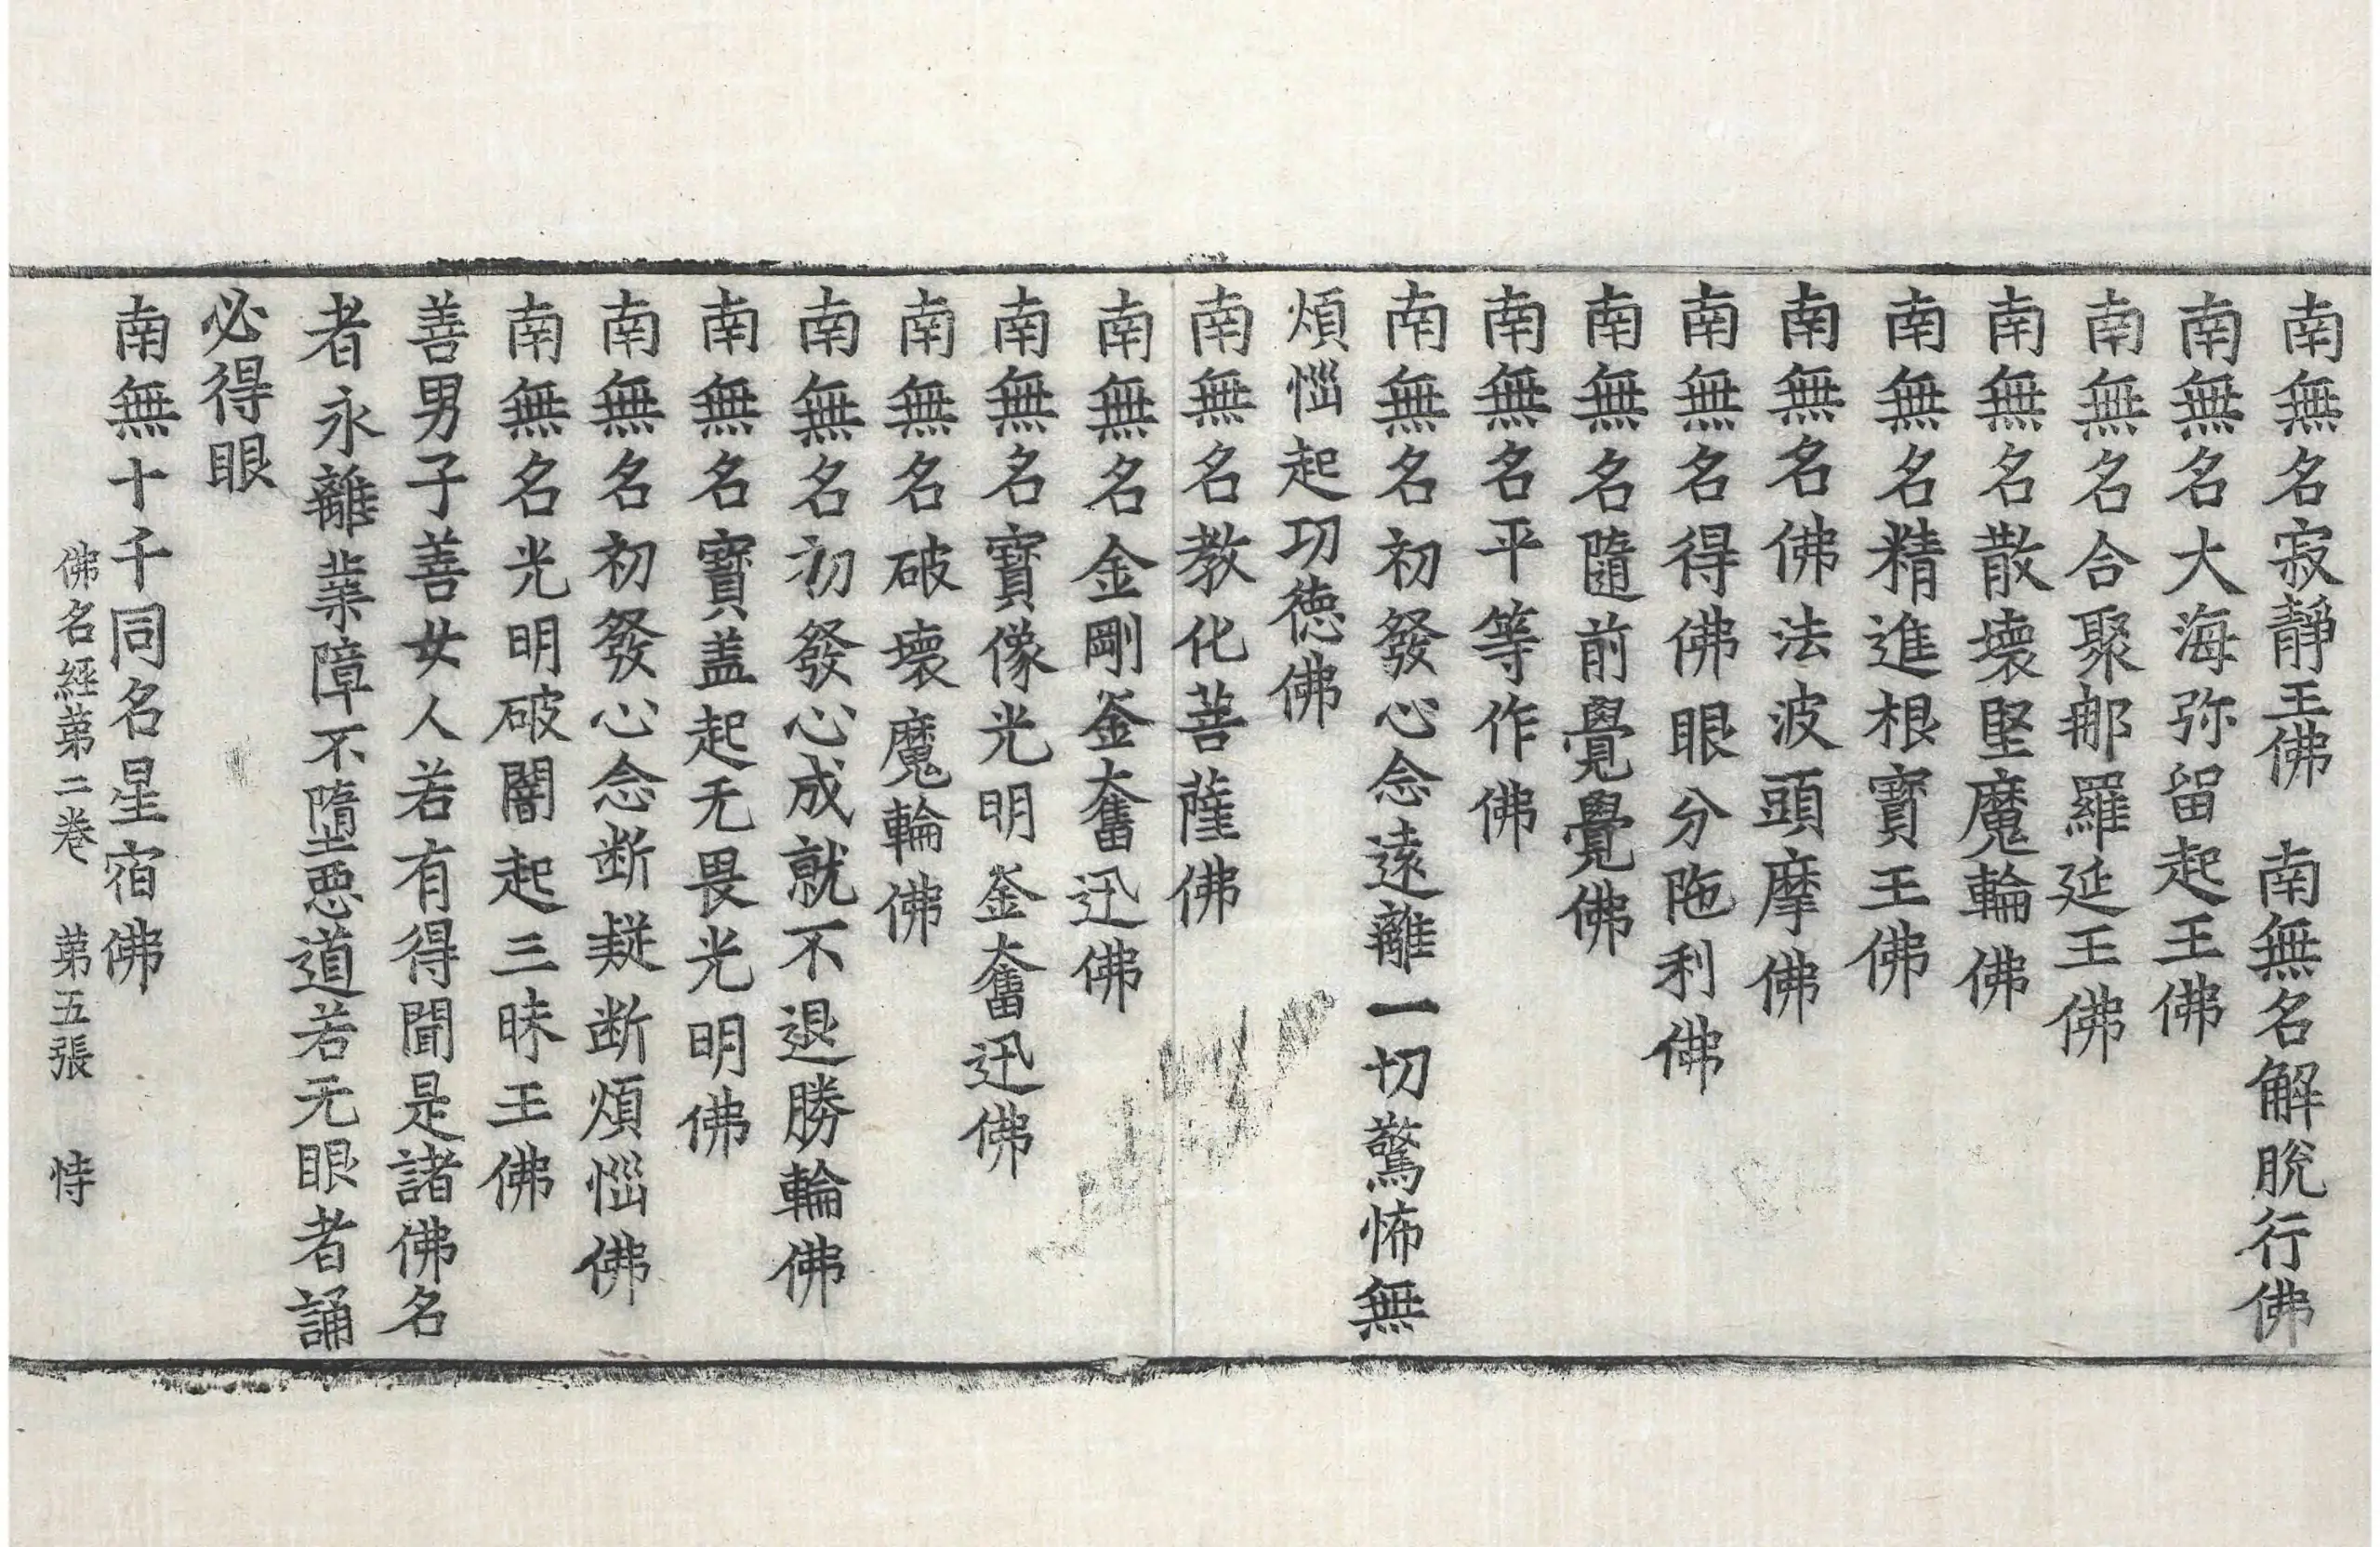 南無名寂靜王佛　南無名解脫行佛
南無名大海弥留起王佛
南無名合聚那羅延王佛
南無名散壞堅魔輪佛
南無名精進根寳王佛
南無名佛法波頭摩佛
南無名得佛眼分陁利佛
南無名隨前覺覺佛
南無名平等作佛
南無名初發心念遠離一切驚怖無
煩惱起功徳佛
南無名教化菩薩佛
南無名金剛釜奮迅佛
南無名寳像光明釜奮迅佛
南無名破壞魔輪佛
南無名初發心成就不退勝輪佛
南無名寳盖起无畏光明佛
南無名初發心念断疑断煩惱佛
南無名光明破闇起三昧王佛
善男子善女人若有得聞是諸佛名
者永離業障不墮惡道若无眼者誦
必得眼
南無十千同名星宿佛
佛名經第二卷　第五張　恃